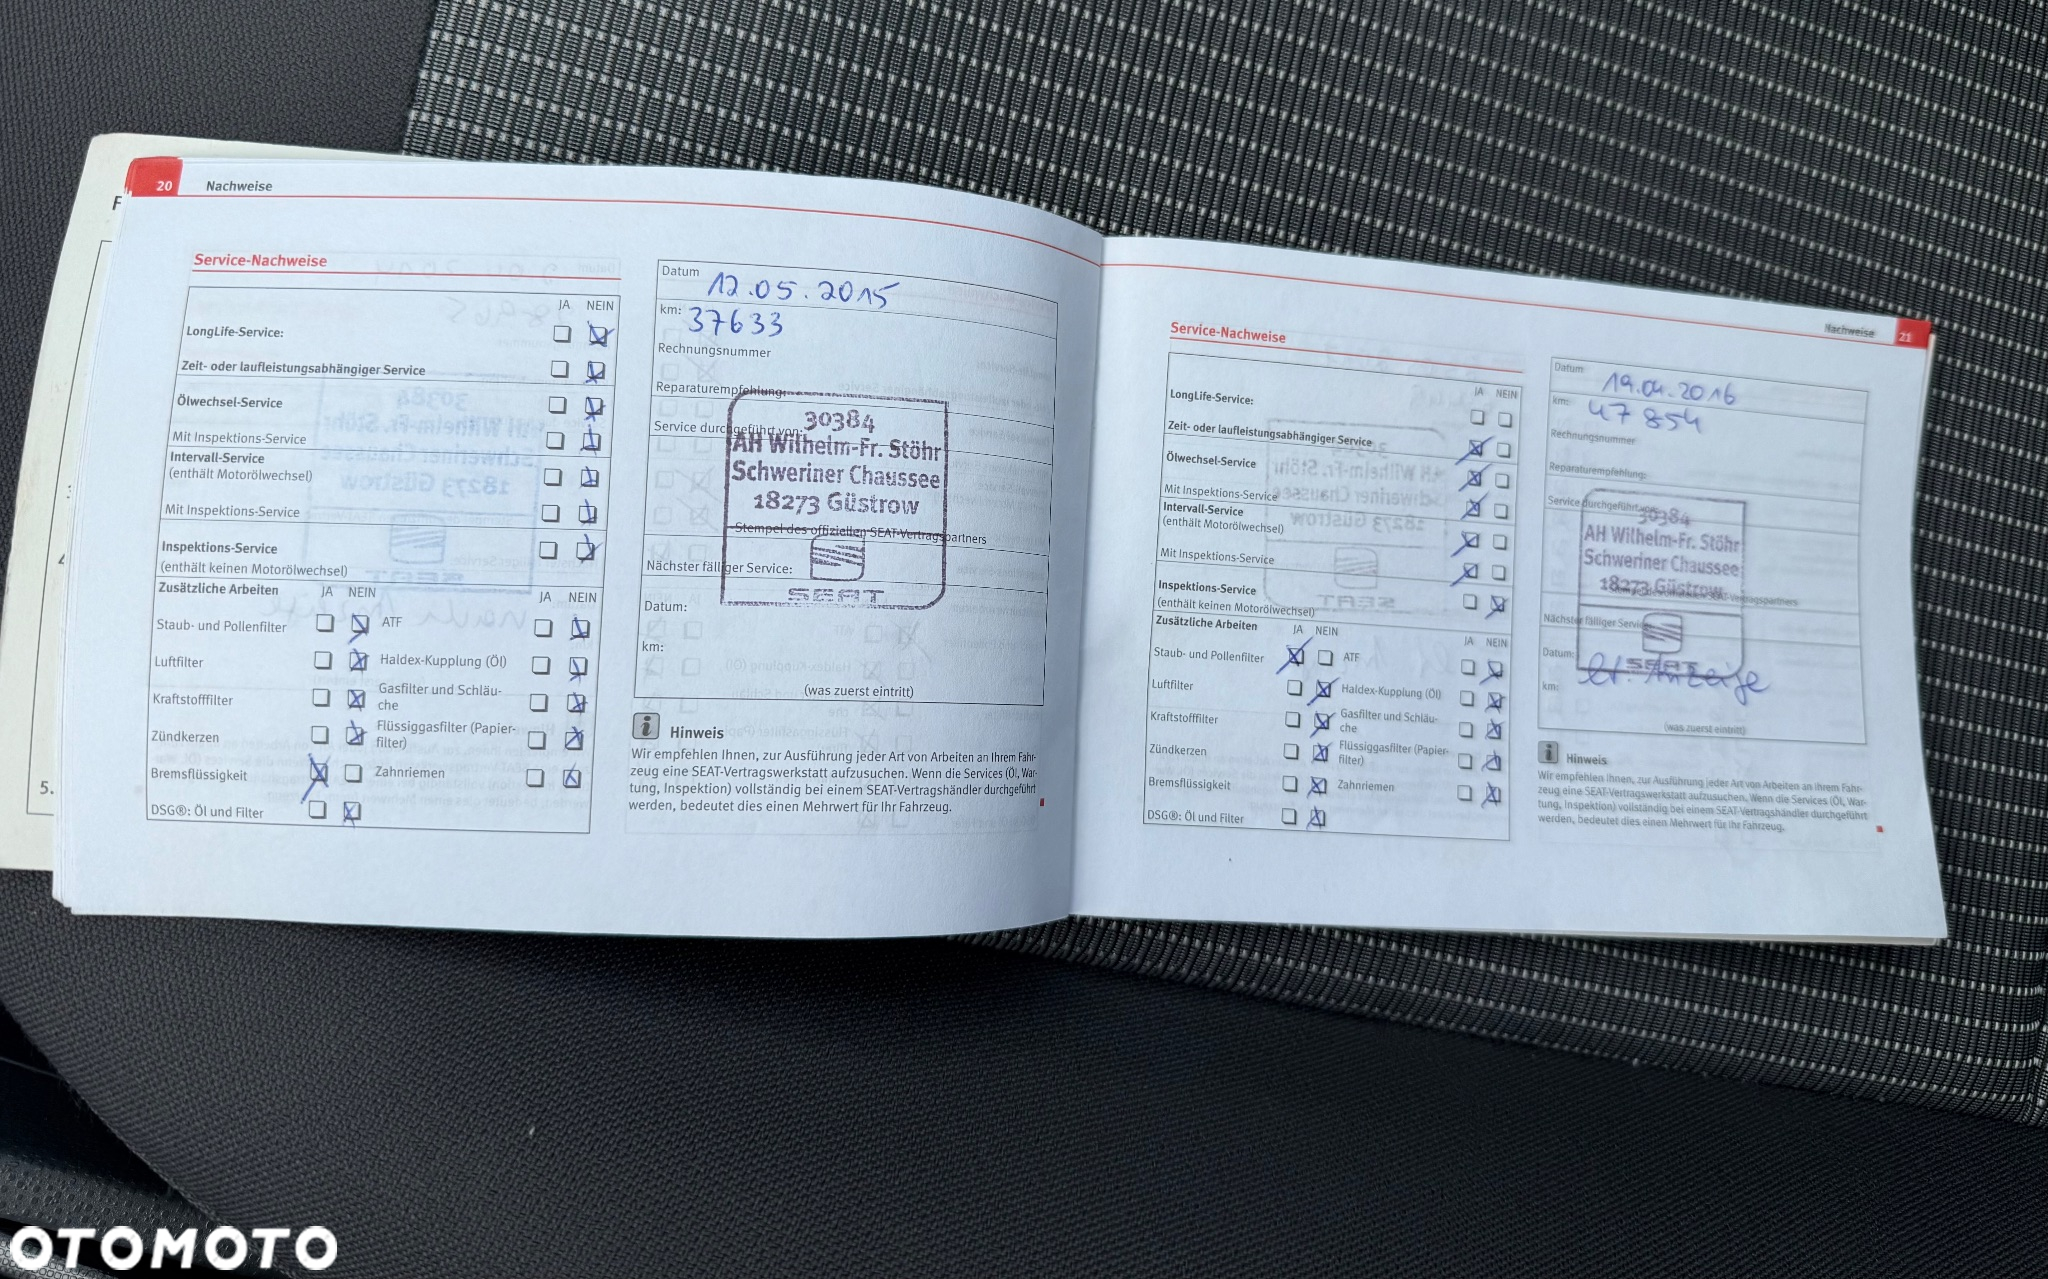 20 Nachweise
Service-Nachweise
JA NEIN
LongLife-Service:
Zeit- oder laufleistungsabhängiger Service
Ölwechsel-Service
Mit Inspektions-Service
Intervall-Service
(enthält Motorölwechsel)
Mit Inspektions-Service
Inspektions-Service
(enthält keinen Motorölwechsel)
Zusätzliche Arbeiten JA NEIN JA NEIN
Staub- und Pollenfilter ATF
Luftfilter Haldex-Kupplung (Öl)
Kraftstofffilter Gasfilter und Schläu-
che
Zündkerzen Flüssiggasfilter (Papier-
filter)
Bremsflüssigkeit Zahnriemen
DSG®: Öl und Filter
Datum 12.05.2015
km: 37633
Rechnungsnummer
Reparaturempfehlung:
Service durchgeführt von:
30384
AH Wilhelm-Fr. Stöhr
Schweriner Chaussee
18273 Güstrow
Stempel des offiziellen SEAT-Vertragspartners
Nächster fälliger Service:
SEAT
Datum:
km:
(was zuerst eintritt)
i Hinweis
Wir empfehlen Ihnen, zur Ausführung jeder Art von Arbeiten an Ihrem Fahr-
zeug eine SEAT-Vertragswerkstatt aufzusuchen. Wenn die Services (Öl, War-
tung, Inspektion) vollständig bei einem SEAT-Vertragshändler durchgeführt
werden, bedeutet dies einen Mehrwert für Ihr Fahrzeug.
Nachweise 21
Service-Nachweise
JA NEIN
LongLife-Service:
Zeit- oder laufleistungsabhängiger Service
Ölwechsel-Service
Mit Inspektions-Service
Intervall-Service
(enthält Motorölwechsel)
Mit Inspektions-Service
Inspektions-Service
(enthält keinen Motorölwechsel)
Zusätzliche Arbeiten JA NEIN JA NEIN
Staub- und Pollenfilter ATF
Luftfilter Haldex-Kupplung (Öl)
Kraftstofffilter Gasfilter und Schläu-
che
Zündkerzen Flüssiggasfilter (Papier-
filter)
Bremsflüssigkeit Zahnriemen
DSG®: Öl und Filter
Datum 19.04.2016
km: 47854
Rechnungsnummer
Reparaturempfehlung:
Service durchgeführt von:
30384
AH Wilhelm-Fr. Stöhr
Schweriner Chaussee
18273 Güstrow
Nächster fälliger Service:
SEAT
Datum: lt. Anzeige
km:
(was zuerst eintritt)
i Hinweis
Wir empfehlen Ihnen, zur Ausführung jeder Art von Arbeiten an Ihrem Fahr-
zeug eine SEAT-Vertragswerkstatt aufzusuchen. Wenn die Services (Öl, War-
tung, Inspektion) vollständig bei einem SEAT-Vertragshändler durchgeführt
werden, bedeutet dies einen Mehrwert für Ihr Fahrzeug.
F
5.
OTOMOTO